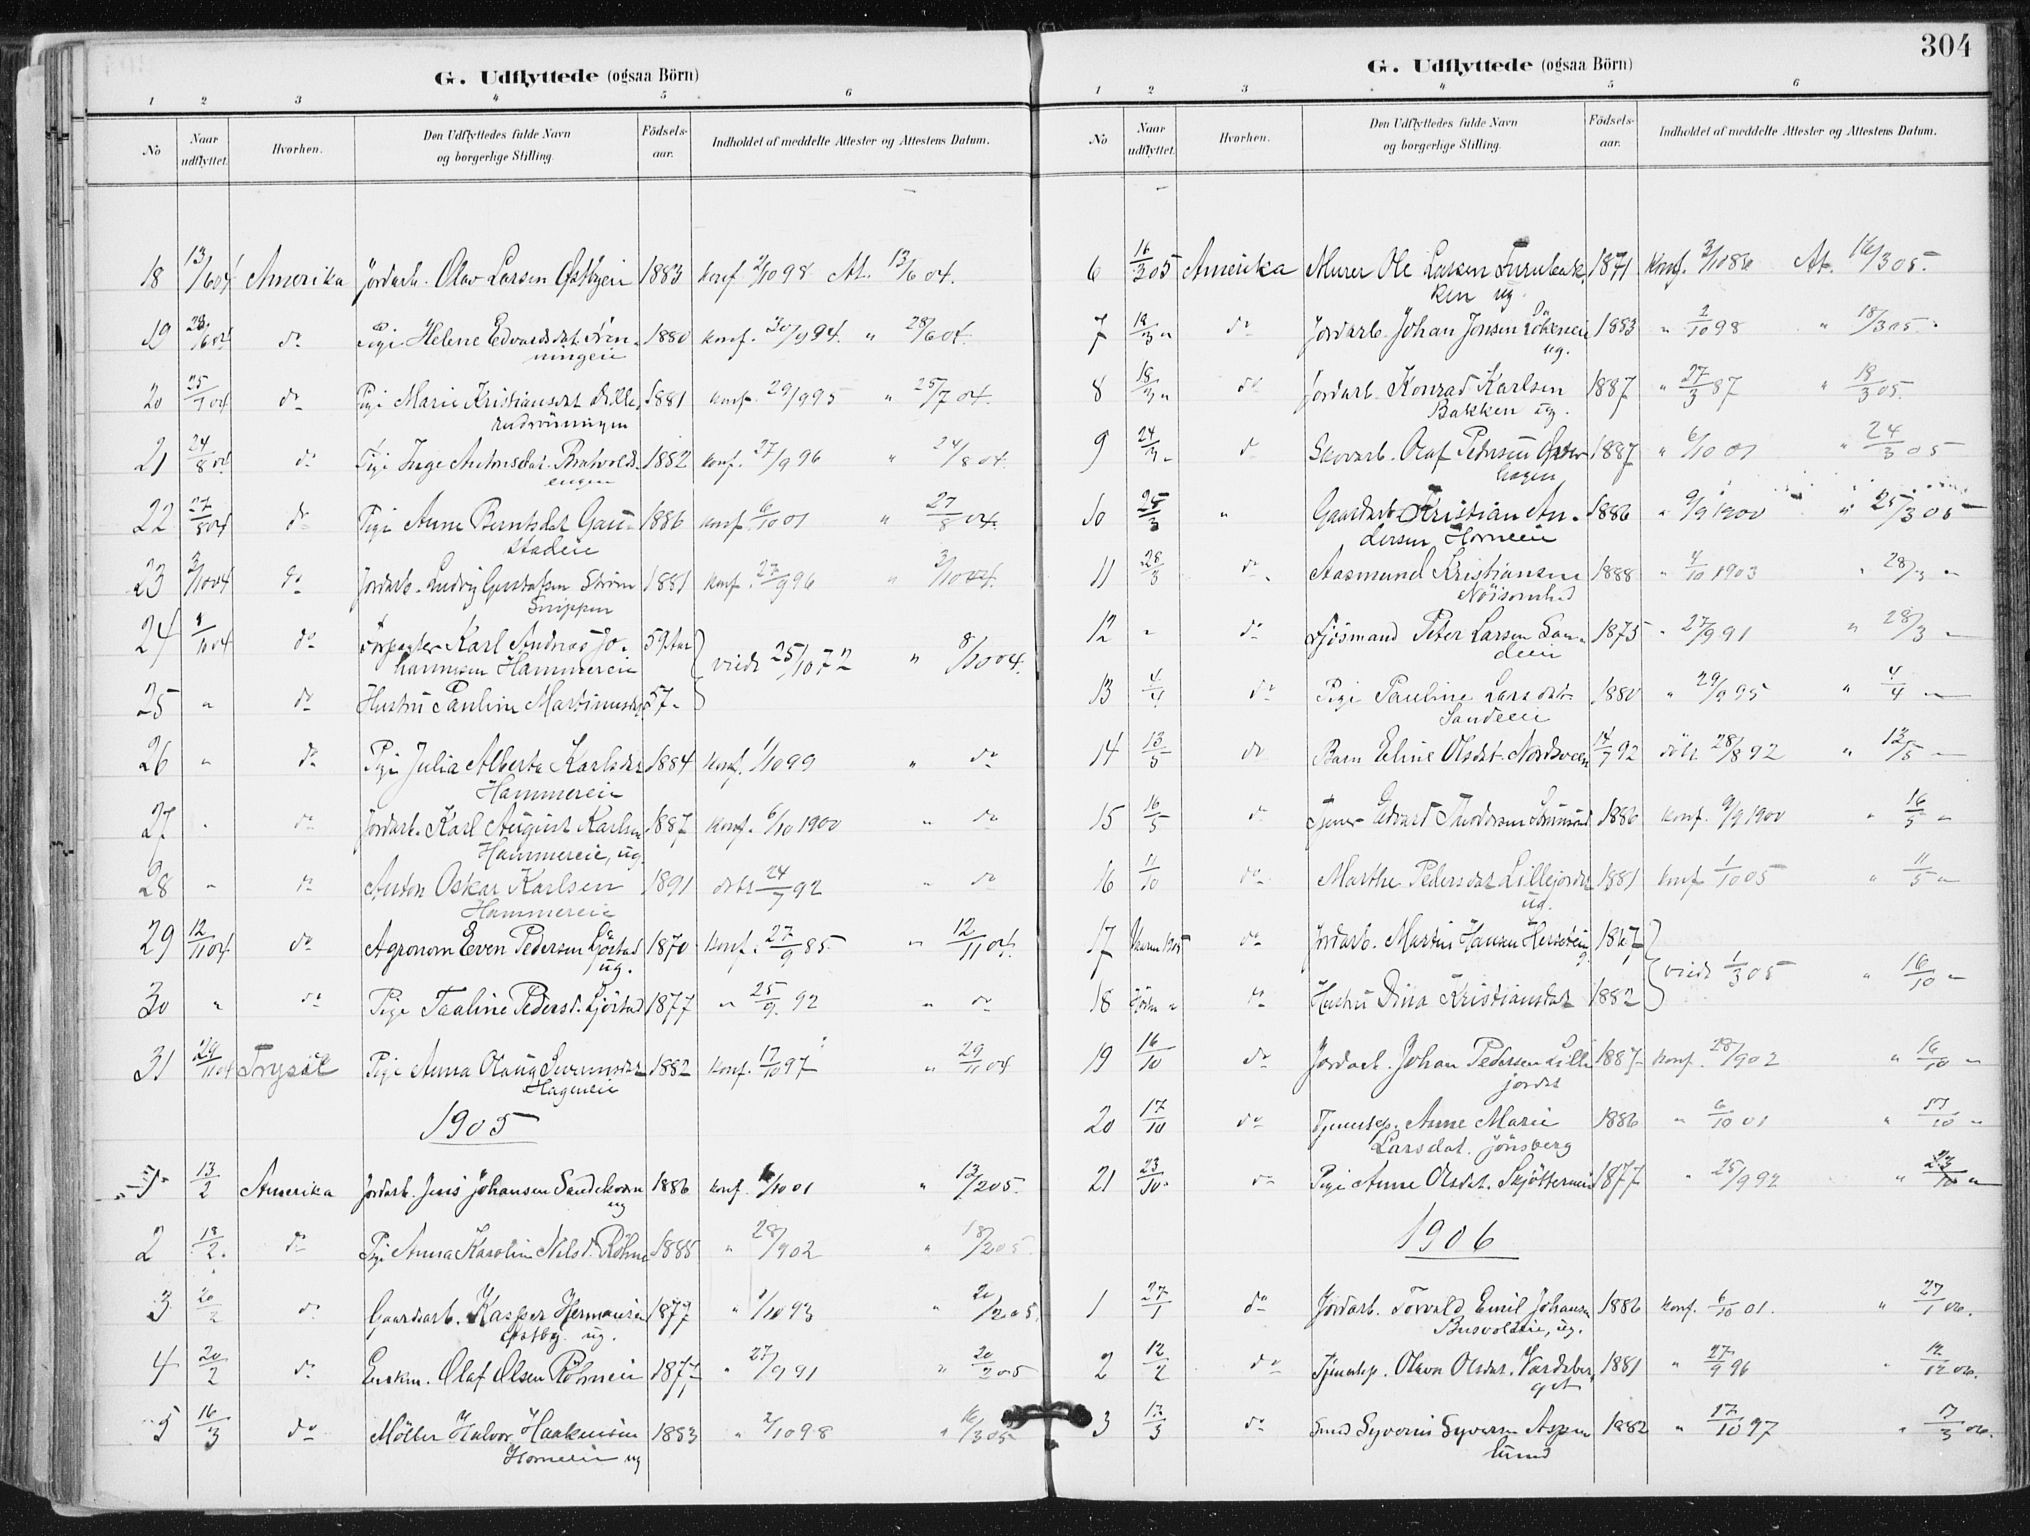 304
G. Udflyttede (ogsaa Börn)
1 2 3 4 5 6
No Naar udflyttet. Hvorhen. Den Udflyttedes fulde Navn og borgerlige Stilling. Födsels-aar. Indholdet af meddelte Attester og Attestens Datum.
18 13/6 04 Amerika Jordarb. Olav Larsen Østbyeie 1883 konf. 2/10 98 At. 13/6 04.
19 28/6 04 do Pige Helene Edvardsdat. 1880 konf. 30/9 94. " 28/6 04.
ningeie
20 25/7 04 do Pige Marie Kristiansdat. Lille- 1881 konf. 29/9 95 " 25/7 04.
21 24/8 04 do Pige Inge Antonsdat. Bratvolds 1882 konf. 27/9 96 " 24/8 04.
engen
22 27/8 04 do Pige Anne Berntsdat Gau- 1886 konf. 6/10 01 " 27/8 04.
stadeie
23 3/10 04 do Jordarb. Ludvig Gustafsen Ström 1881 konf. 27/9 96 " 3/10 04.
Snippen
24 8/10 04 do Karl Andreas Jo- 59 Aar
hannesen Hammereie viede 25/10 72 " 8/10 04.
25 " do Hustru Pauline Martinusdat. 57 -
26 " do Pige Julia Alberta Karlsdat 1884 konf. 1/10 99 " do
Hammereie
27 " do Jordarb. Karl August Karlsen 1887 konf. 6/10 1900 " do
Hammereie, ug.
28 " do Anton Oskar Karlsen 1891 döbt 24/7 92 " do
Hammereie
29 12/11 04 do Agronom Even Pedersen Gjörstad 1870 konf. 27/9 85 " 12/11 04.
ug.
30 " do Pige Taaline Pedersd. Gjörstad 1877 " 25/9 92 " do
31 29/11 04 Trysil Pige Anna Olaug 1882 konf. 17/10 97 " 29/11 04
Hageneie
1905
1 13/2 Amerika Jordarb. Jens Johansen 1886 konf. 6/10 01 " 13/2 05.
ug
2 18/2. do Pige Anna Karoline Nilsd. Röhne 1888 " 28/9 02 " 18/2 05.
3 20/2 do Gaardarb. Kasper Hermansen 1879 " 1/10 93 " 20/2 05.
Østby ug.
4 20/2 do Olaf Olsen Röhneeie 1877 " 27/9 91 " 20/2 05
5 16/3 do Möller Halvor Haakensen 1883 " 2/10 98 " 16/3 05
Horneeie ug
G. Udflyttede (ogsaa Börn)
1 2 3 4 5 6
No Naar udflyttet. Hvorhen. Den Udflyttedes fulde Navn og borgerlige Stilling. Födsels-aar. Indholdet af meddelte Attester og Attestens Datum.
6 16/3 05 Amerika Murer Ole Larsen Furubak- 1871 konf. 3/10 86 At. 16/3 05.
ken ug.
7 18/3 " do Jordarb. Johan Jonsen 1883 " 2/10 98 " 18/3 05.
ug.
8 18/3 " do Jordarb. Konrad Karlsen 1887 " 27/3 87 " 18/3 05.
Bakken ug.
9 24/3 " do Skovarb. Olaf Pedersen 1887 " 6/10 01 " 24/3 05
hagen
10 25/3 " Gaardarb. Kristian An- 1886 " 9/9 1900 " 25/3 05
dersen Horneeie
11 28/3 do Aasmund Kristiansen 1888 " 4/10 1903 " 28/3 "
Nöisomhed
12 " do Sjömand Peter Larsen San- 1875 " 27/9 91 " 28/3 "
deeie
13 4/4 do Pige Pauline Larsdat. 1880 " 29/9 95 " 4/4 "
Sandeeie
14 13/5 do Barn Eline Olsdat. 14/7 92 döbt 28/8 92 " 13/5 "
15 16/5 do Tjener Edvard 1886 konf. 9/9 1900 " 16/5 "
16 11/10 do Marthe Pedersdat Lillejordet 1881 konf. 1/10 05 " 11/5 "
ug.
17 1905 do Jordarb. Martin Hansen 1867
viede 1/3 05 " 16/10 "
18 " do Hustru Dina Kristiansdat 1882
19 16/10 do Jordarb. Johan Pedersen Lille 1887 konf. 28/9 02 " 16/10 "
jordet
20 17/10 do Tjenestep. Anne Marie 1886 " 6/10 01 " 17/10 "
Larsdat. Jönsberg
21 23/10 do Pige Anne Olsdat. 1877 " 25/9 92 " 23/10 "
1906
1 27/1 do Jordarb. Torvald Emil Johansen 1886 konf. 6/10 01. " 27/1 06.
ug.
2 12/2 do Tjenestep. Olava Olsdat. Vardeber 1881 " 27/9 96 " 12/12 06.
get
3 17/3 do Smed Syverin Syversen Aspe 1882 " 17/10 97 " 17/3 06.
lund